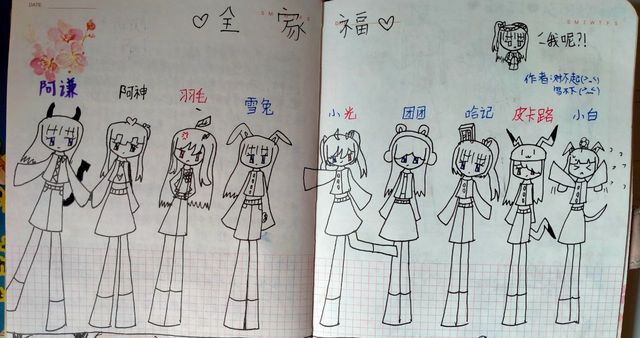 DATE
♡全家福♡
S M T W T F S
S M T W T F S
二我呢?!
作者:对不起(>﹏<)
写不下(>﹏<)
阿谦 阿神 羽毛 雪兔 小光 团团 哈记 皮卡路 小白